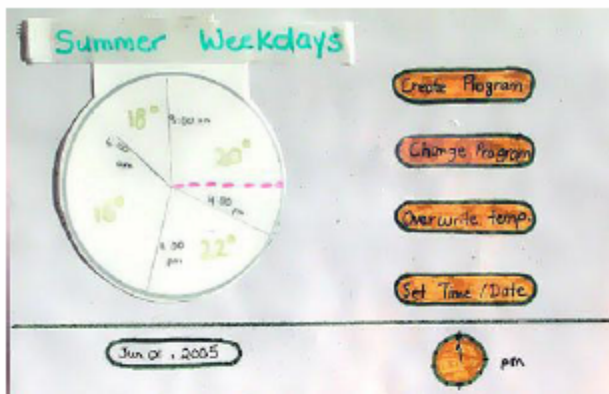 Summer Weekdays
18°
20°
6:00
am
16°
4:00
pm
22°
pm
Create Program
Change Program
Overwrite temp.
Set Time/Date
, 2005
pm